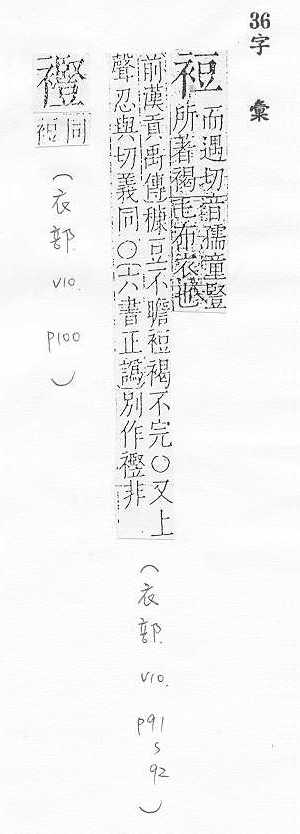 36 字彙
裋
而遇切音孺童豎
所著褐毛布衣也
前漢貢禹傳穅豆不贍裋褐不完○又上
聲忍與切義同○六書正譌別作𧞫非
（衣部 V10. p91 5 92）
𧞫
同
裋
（衣部 V10. p100）